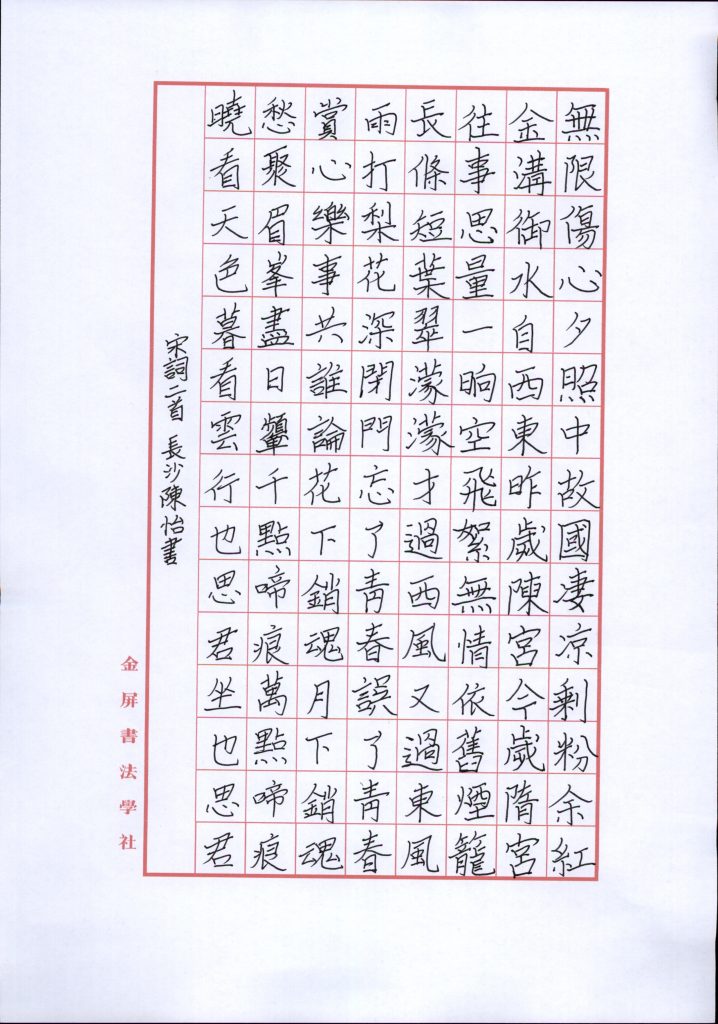 無限傷心夕照中故國淒凉剩粉余紅
金溝御水自西東昨歲陳宮今歲隋宮
往事思量一晌空飛絮無情依舊煙籠
長條短葉翠濛濛才過西風又過東風
雨打梨花深閉門忘了青春誤了青春
賞心樂事共誰論花下銷魂月下銷魂
愁聚眉峯盡日顰千點啼痕萬點啼痕
曉看天色暮看雲行也思君坐也思君
宋詞二首 長沙陳怡書
金屏書法學社